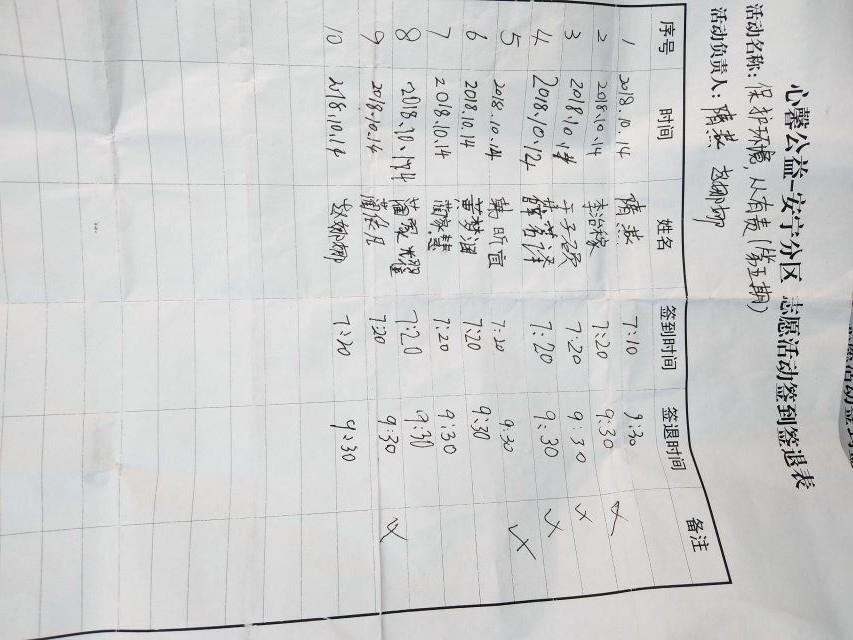 心馨公益-安宁分区 志愿活动签到签退表
活动名称：保护环境,人有责(第五期)
活动负责人：隋燕 赵娜娜
序号 时间 姓名 签到时间 签退时间 备注
1 2018.10.14 隋燕 7:10 9:30
2 2018.10.14 李治稼 7:20 9:30
3 2018.10.14 于子硕 7:20 9:30
4 2018.10.12 7:20 9:30
5 2018.10.14 韩昕宜 7:20 9:30
6 2018.10.14 黄梦涵 7:20 9:30
7 2018.10.14 7:20 9:30
8 2018.10.14 7:20 9:30
9 2018.10.14 7:20 9:30
10 2018.10.14 赵娜娜 7:20 9:30